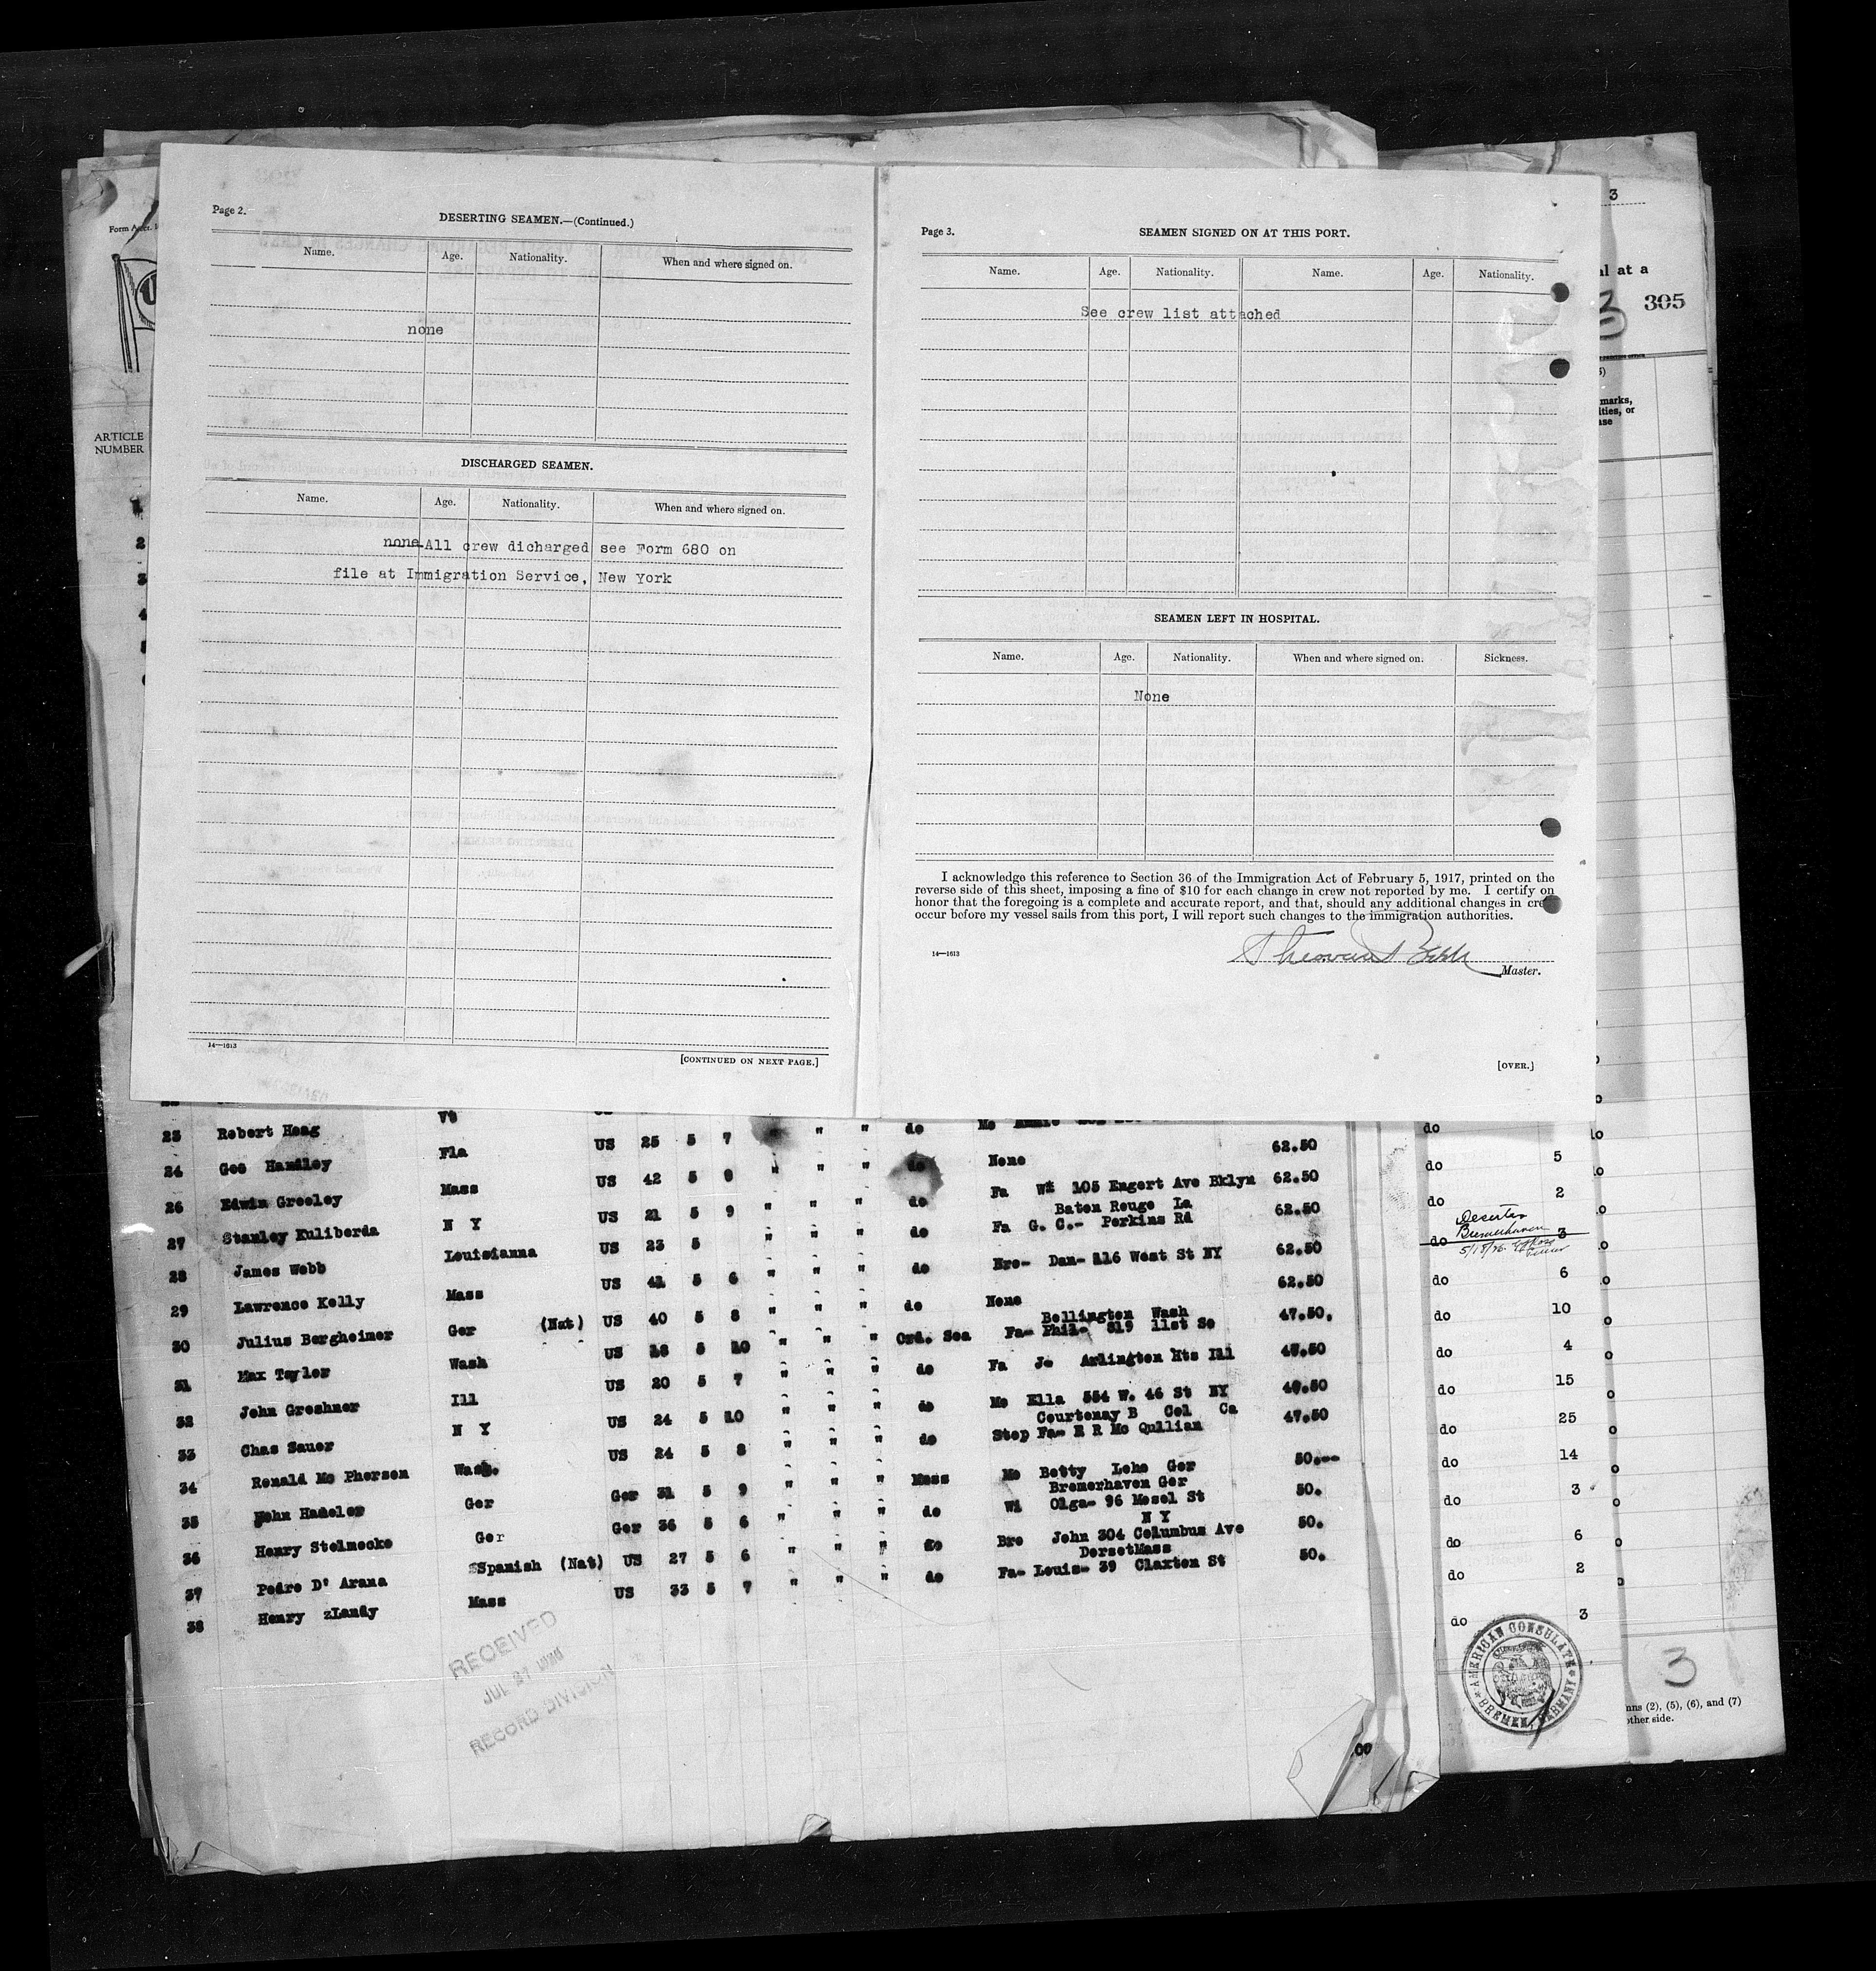 Page 2.
DESERTING SEAMEN.—(Continued.)
Name. Age. Nationality. When and where signed on.
none
DISCHARGED SEAMEN.
Name. Age. Nationality. When and where signed on.
none All crew dicharged see Form 680 on
file at Immigration Service, New York
14—1613
[CONTINUED ON NEXT PAGE.]
Page 3.
SEAMEN SIGNED ON AT THIS PORT.
Name. Age. Nationality. Name. Age. Nationality.
See crew list attached
SEAMEN LEFT IN HOSPITAL.
Name. Age. Nationality. When and where signed on. Sickness.
None
I acknowledge this reference to Section 36 of the Immigration Act of February 5, 1917, printed on the
reverse side of this sheet, imposing a fine of $10 for each change in crew not reported by me. I certify on
honor that the foregoing is a complete and accurate report, and that, should any additional changes in crew
occur before my vessel sails from this port, I will report such changes to the immigration authorities.
14—1613
Master.
[OVER.]
ARTICLE
NUMBER
2
3
4
3
al at a
305
marks,
ities, or
ase
Vt
23 Robert Hoag Fla US 25 5 7 " " do
24 Geo Handley Mass US 42 5 8 " " None 62.50
26 Edwin Greeley N Y US 21 5 9 " " " do Fa Wm 105 Engert Ave Bklyn 62.50
Baton Rouge La
27 Stanley Kuliberda Louisianna US 23 5 " " " do Fa G. C.- Perkins Rd 62.50
28 James Webb Mass US 41 5 6 " " " do Bro- Dan- 116 West St NY 62.50
29 Lawrence Kelly Ger (Nat) US 40 5 8 " " " do None 62.50
Bellington Wash
30 Julius Bergheimer Wash US 18 5 10 " " " Ord. Sea Fa- Phil- 819 11st So 47.50.
31 Max Taylor Ill US 20 5 7 " " " do Fa Jo Arlington Hts Ill 47.50
32 John Greshner N Y US 24 5 10 " " " do Mo Ella 554 W. 46 St NY 47.50
Courtenay B Col Ca
33 Chas Sauer Wash. US 24 5 8 " " " do Step Fa- R R Mc Qullian 47.50
34 Ronald Mc Pherson Ger Ger 31 5 9 " " " Mess Mo Betty Lehe Ger 50.--
Bremerhaven Ger
35 John Hadeler Ger Ger 36 5 6 " " " do Wi Olga- 96 Mosel St 50.
N Y
36 Henry Stelmecke Spanish (Nat) US 27 5 6 " " " do Bro John 304 Columbus Ave 50.
DorsetMass
37 Pedro D' Arana Mass US 33 5 7 " " " do Fa- Louis- 39 Claxton St 50.
38 Henry zLandy
RECEIVED
JUL 27
RECORD DIVISION
00
do
do 5
do 2
Deserter
Bremerhaven
do 3
do 6
do 10
do 4
do 15
do 25
do 14
do 3
do 6
do 2
do 3
AMERICAN CONSULATE
BREMEN, GERMANY
3
mns (2), (5), (6), and (7)
other side.